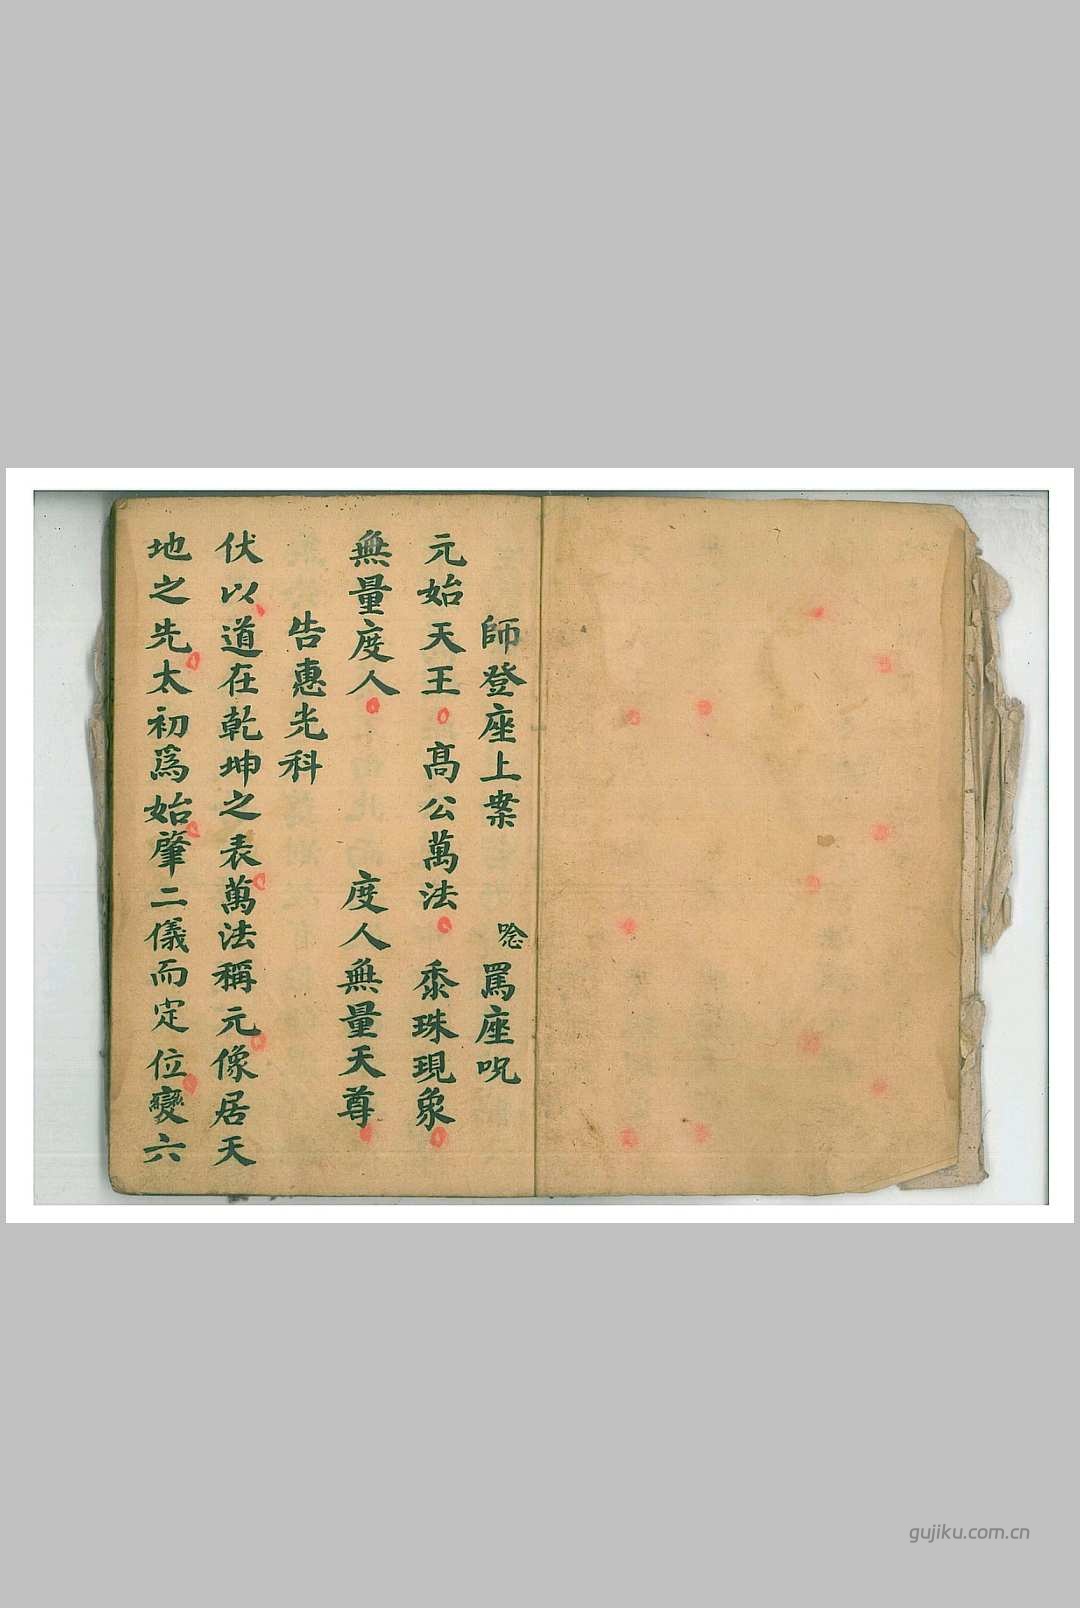 師登座上案 唸罵座呪
元始天王 高公萬法 黍珠現象
無量度人 度人無量天尊
告惠光科
伏以道在乾坤之表萬法稱元像居天
地之先太初爲始肇二儀而定位變六
gujiku.com.cn